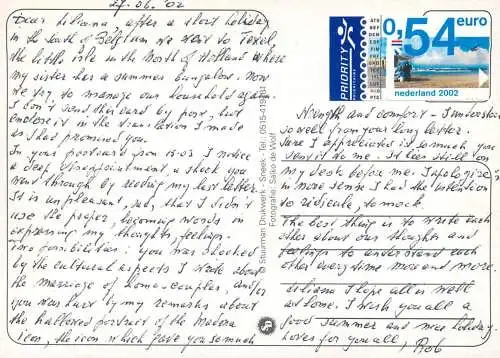 27-06-'02
Dear Liliana, after a short holiday
in the South of Belgium we went to Texel,
the little isle in the North of Holland where
my sister has a summer bungalow. Now
we try to manage our household again.
I don't send the card by post, but
enclose it in the translation I made
as I had promised you.
In your postcard from 15-03 I notice
a deep disappointment, a shock you
went through by reading my last letter.
It is unpleasant, but, that I didn't
use the proper, becoming words in
expressing my thoughts, feelings.
Two possibilities: you was shocked
by the cultural aspects I wrote about
the marriage of homo-couples, and/or
you was hurt by my remarks about
the hallowed portrait of the Madonna
icon, the icon which gave you so much
Stuurman Drukwerk - Sneek - Tel. 0515-419
Fotografie: Salko de Wolf
PRIORITY
0,54 euro
nederland 2002
strength and comfort - I understand
so well from your long letter.
Sure I appreciated is so much you
wrote to me. It lies still on
my desk before me. I apologize
in more sense I had the intention
to ridicule, to mock.
The best thing is to write each
other about our thoughts and
feelings to understand each
other every time more and more.
Liliana I hope all is well
at home. I wish you all a
good summer and nice holiday-
hours for you all, Rob